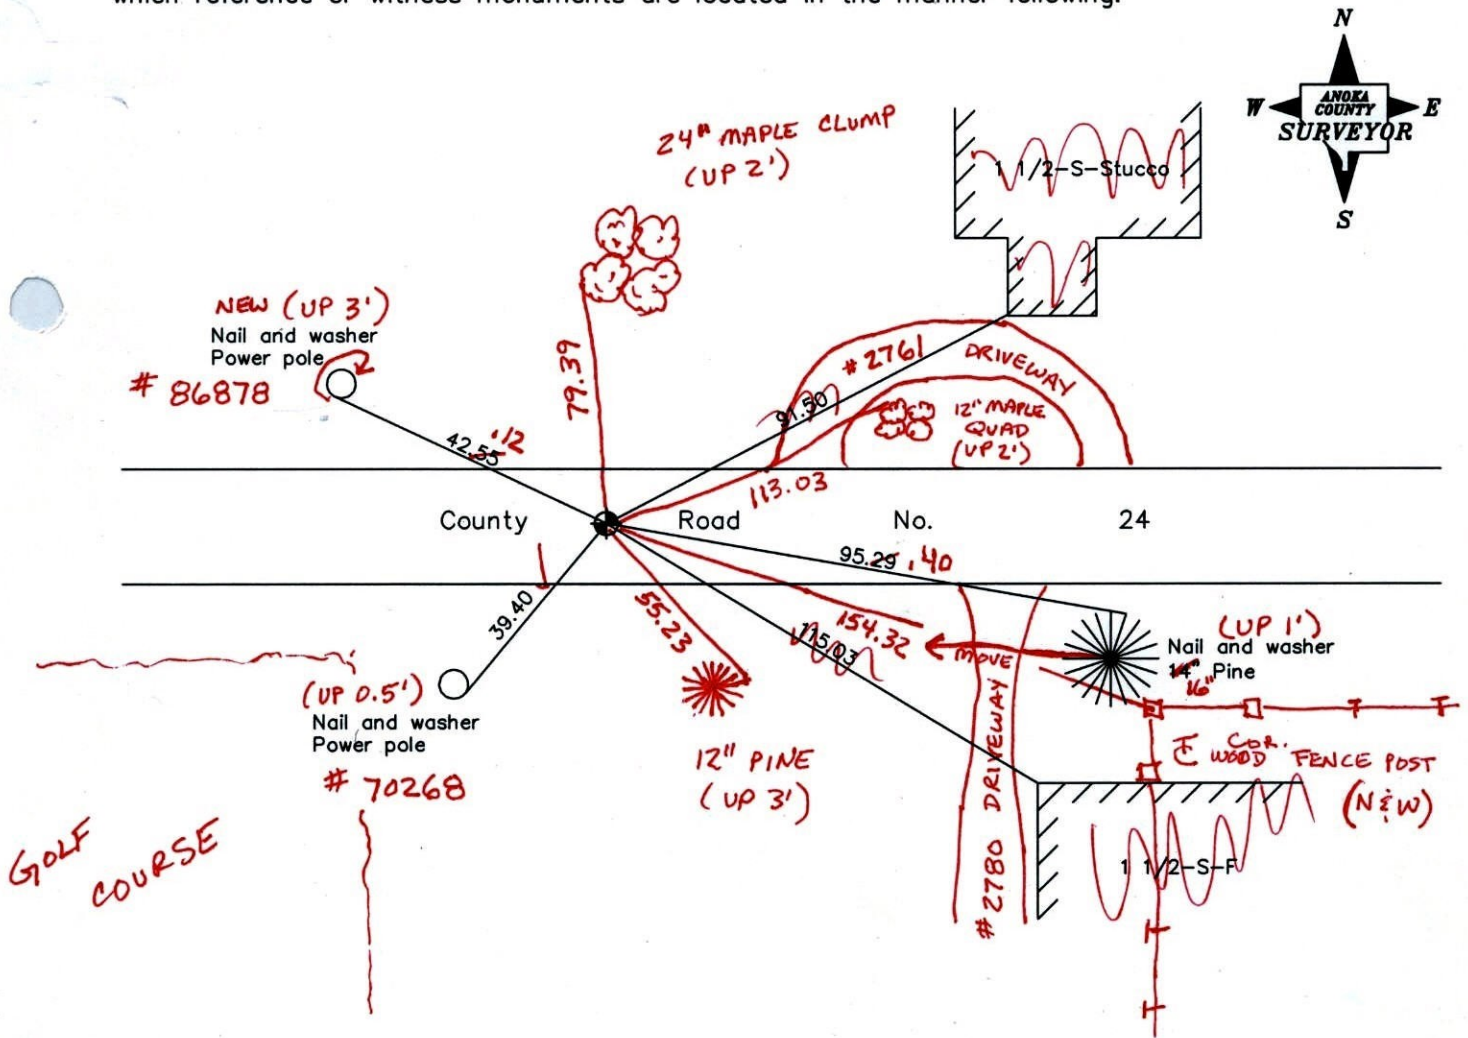 which reference or witness monuments are located in the manner following:
N
W ANOKA COUNTY E
SURVEYOR
S
24" MAPLE CLUMP
(UP 2')
1 1/2-S-Stucco
NEW (UP 3')
Nail and washer
Power pole
# 86878
79.39
# 2761
DRIVEWAY
91.50
12" MAPLE
QUAD
(UP 2')
42.55 .12
113.03
County Road No. 24
95.29 .40
39.40
55.23
154.32
115.03
MOVE
(UP 1')
Nail and washer
14" Pine
16"
(UP 0.5')
Nail and washer
Power pole
# 70268
12" PINE
(UP 3')
# 2780 DRIVEWAY
COR.
WOOD FENCE POST
(N & W)
1 1/2-S-F
GOLF
COURSE